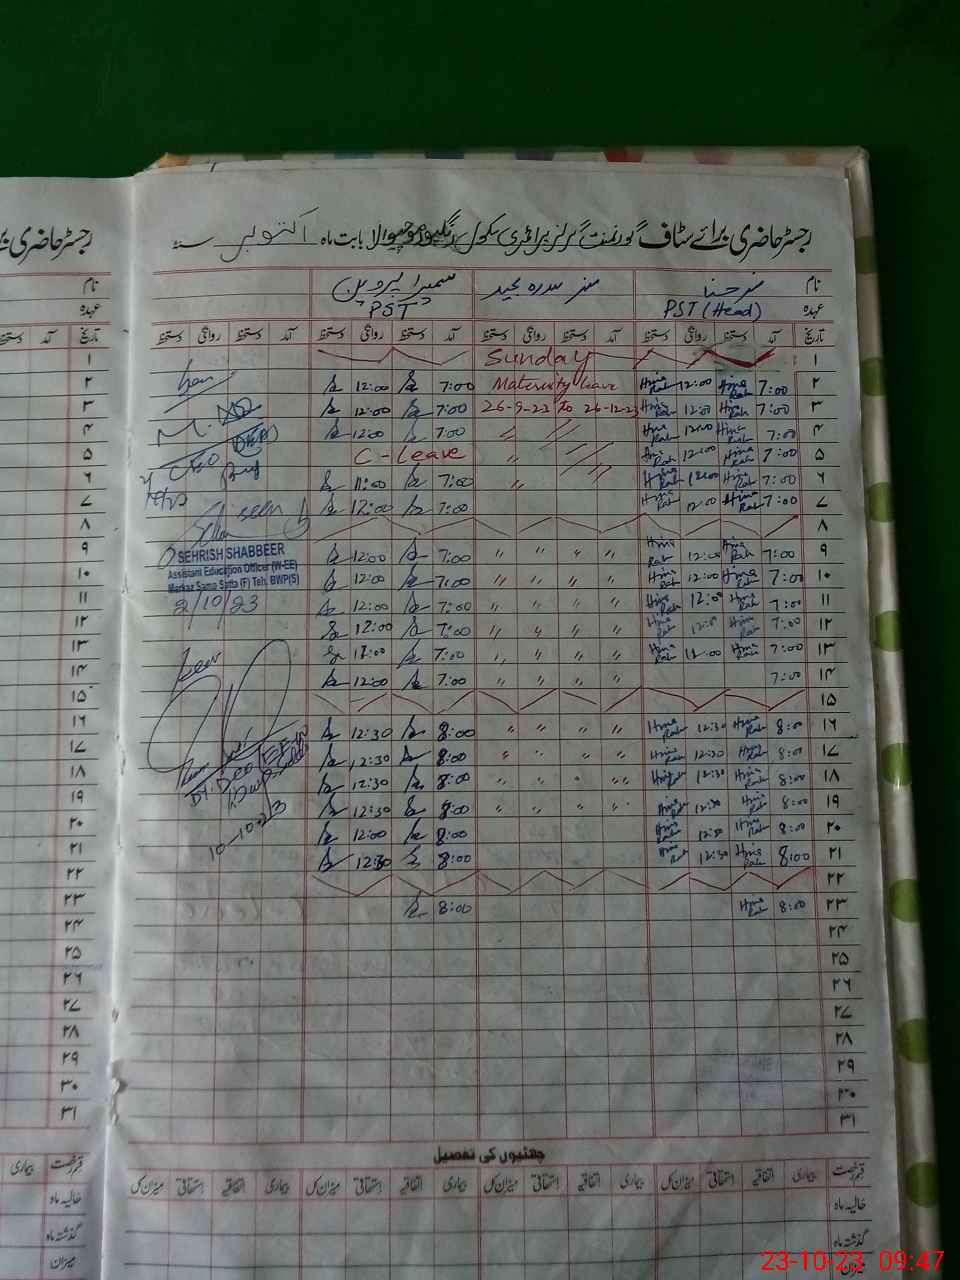 رجسٹر حاضری برائے سٹاف گورنمنٹ گرلز پرائمری سکول رنگپور موچیوالا بابت ماہ اکتوبر سنہ
نام مسز حسنا مسز سدرہ مجید سمیرا پروین
عہدہ PST (Head) PST
تاریخ آمد دستخط روانگی دستخط آمد دستخط روانگی دستخط آمد دستخط روانگی دستخط
۱ Sunday
۲ 7:00 Hina Rab 12:00 Hina Rab Maternity leave 7:00 12:00
۳ 7:00 Hina Rab 12:00 Hina Rab 26-9-23 To 26-12-23 7:00 12:00
۴ 7:00 Hina Rab 12:00 Hina Rab " 7:00 12:00
۵ 7:00 Hina Rab 12:00 Hina Rab " C-Leave
۶ 7:00 Hina Rab 12:00 Hina Rab " 7:00 11:00
۷ 7:00 Hina Rab 12:00 Hina Rab 7:00 12:00
۸
۹ 7:00 Hina Rab 12:00 Hina Rab " " " " 7:00 12:00
۱۰ 7:00 Hina Rab 12:00 Hina Rab " " " " 7:00 12:00
۱۱ 7:00 Hina Rab 12:00 Hina Rab " " " " 7:00 12:00
۱۲ 7:00 Hina Rab 12:00 Hina Rab " " " " 7:00 12:00
۱۳ 7:00 Hina Rab 12:00 Hina Rab " " " " 7:00 12:00
۱۴ 7:00 7:00 12:00
۱۵
۱۶ 8:00 Hina Rab 12:30 Hina Rab " " " " 8:00 12:30
۱۷ 8:00 Hina Rab 12:30 Hina Rab " " " " 8:00 12:30
۱۸ 8:00 Hina Rab 12:30 Hina Rab " " " " 8:00 12:30
۱۹ 8:00 Hina Rab 12:30 Hina Rab " " " " 8:00 12:30
۲۰ 8:00 Hina Rab 12:30 Hina Rab 8:00 12:00
۲۱ 8:00 Hina Rab 12:30 Hina Rab 8:00 12:30
۲۲
۲۳ 8:00 Hina Rab 8:00
۲۴
۲۵
۲۶
۲۷
۲۸
۲۹
۳۰
۳۱
SEHRISH SHABBEER
Assistant Education Officer (W-EE)
Markaz Sama Satta (F) Teh. BWP(S)
2/10/23
10-10-23
چھٹیوں کی تفصیل
قسم رخصت بیماری اتفاقیہ استحقاقی میزان کل بیماری اتفاقیہ استحقاقی میزان کل بیماری اتفاقیہ استحقاقی میزان کل
حالیہ ماہ
گذشتہ ماہ
میزان
رجسٹر حاضری
نام
عہدہ
تاریخ آمد دستخط
۱
۲
۳
۴
۵
۶
۷
۸
۹
۱۰
۱۱
۱۲
۱۳
۱۴
۱۵
۱۶
۱۷
۱۸
۱۹
۲۰
۲۱
۲۲
۲۳
۲۴
۲۵
۲۶
۲۷
۲۸
۲۹
۳۰
۳۱
قسم رخصت بیماری
حالیہ ماہ
گذشتہ ماہ
میزان
23-10-23 09:47